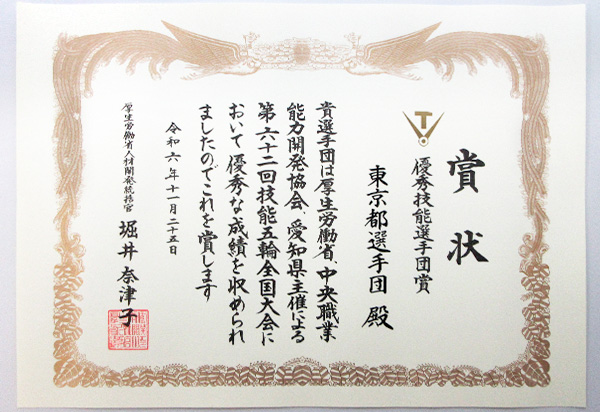 賞状
優秀技能選手団賞
東京都選手団 殿
貴選手団は厚生労働省、中央職業
能力開発協会、愛知県主催による
第六十二回技能五輪全国大会に
おいて優秀な成績を収められ
ましたのでこれを賞します
令和六年十一月二十五日
厚生労働省人材開発統括官 堀井奈津子